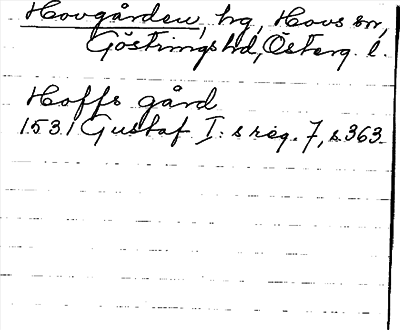 Hovgården, hg, Hovs sn,
Göstrings hd, Österg. l.
Hoffs gård
1531 Gustaf I:s reg. 7, s 363.